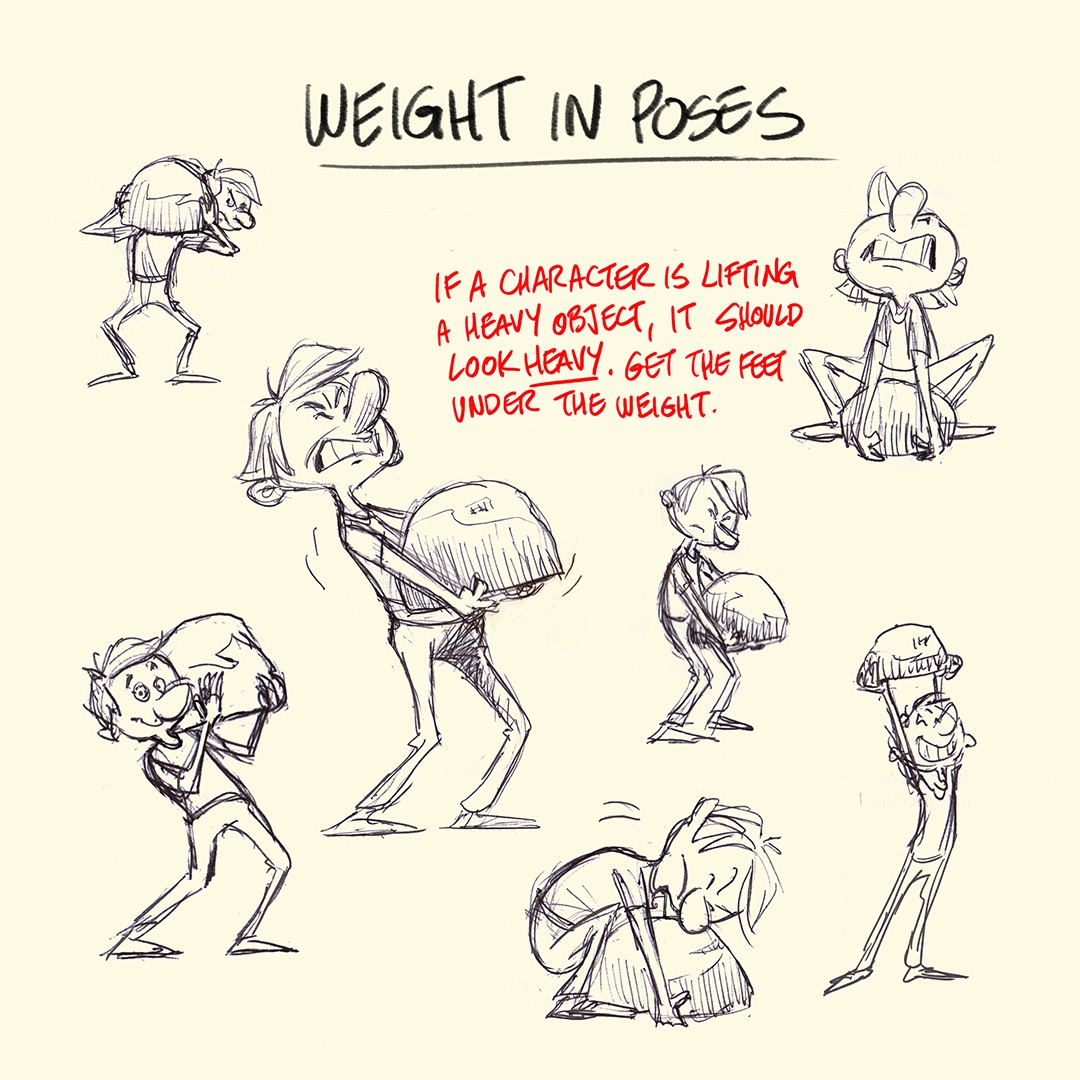 WEIGHT IN POSES
IF A CHARACTER IS LIFTING
A HEAVY OBJECT, IT SHOULD
LOOK HEAVY. GET THE FEET
UNDER THE WEIGHT.